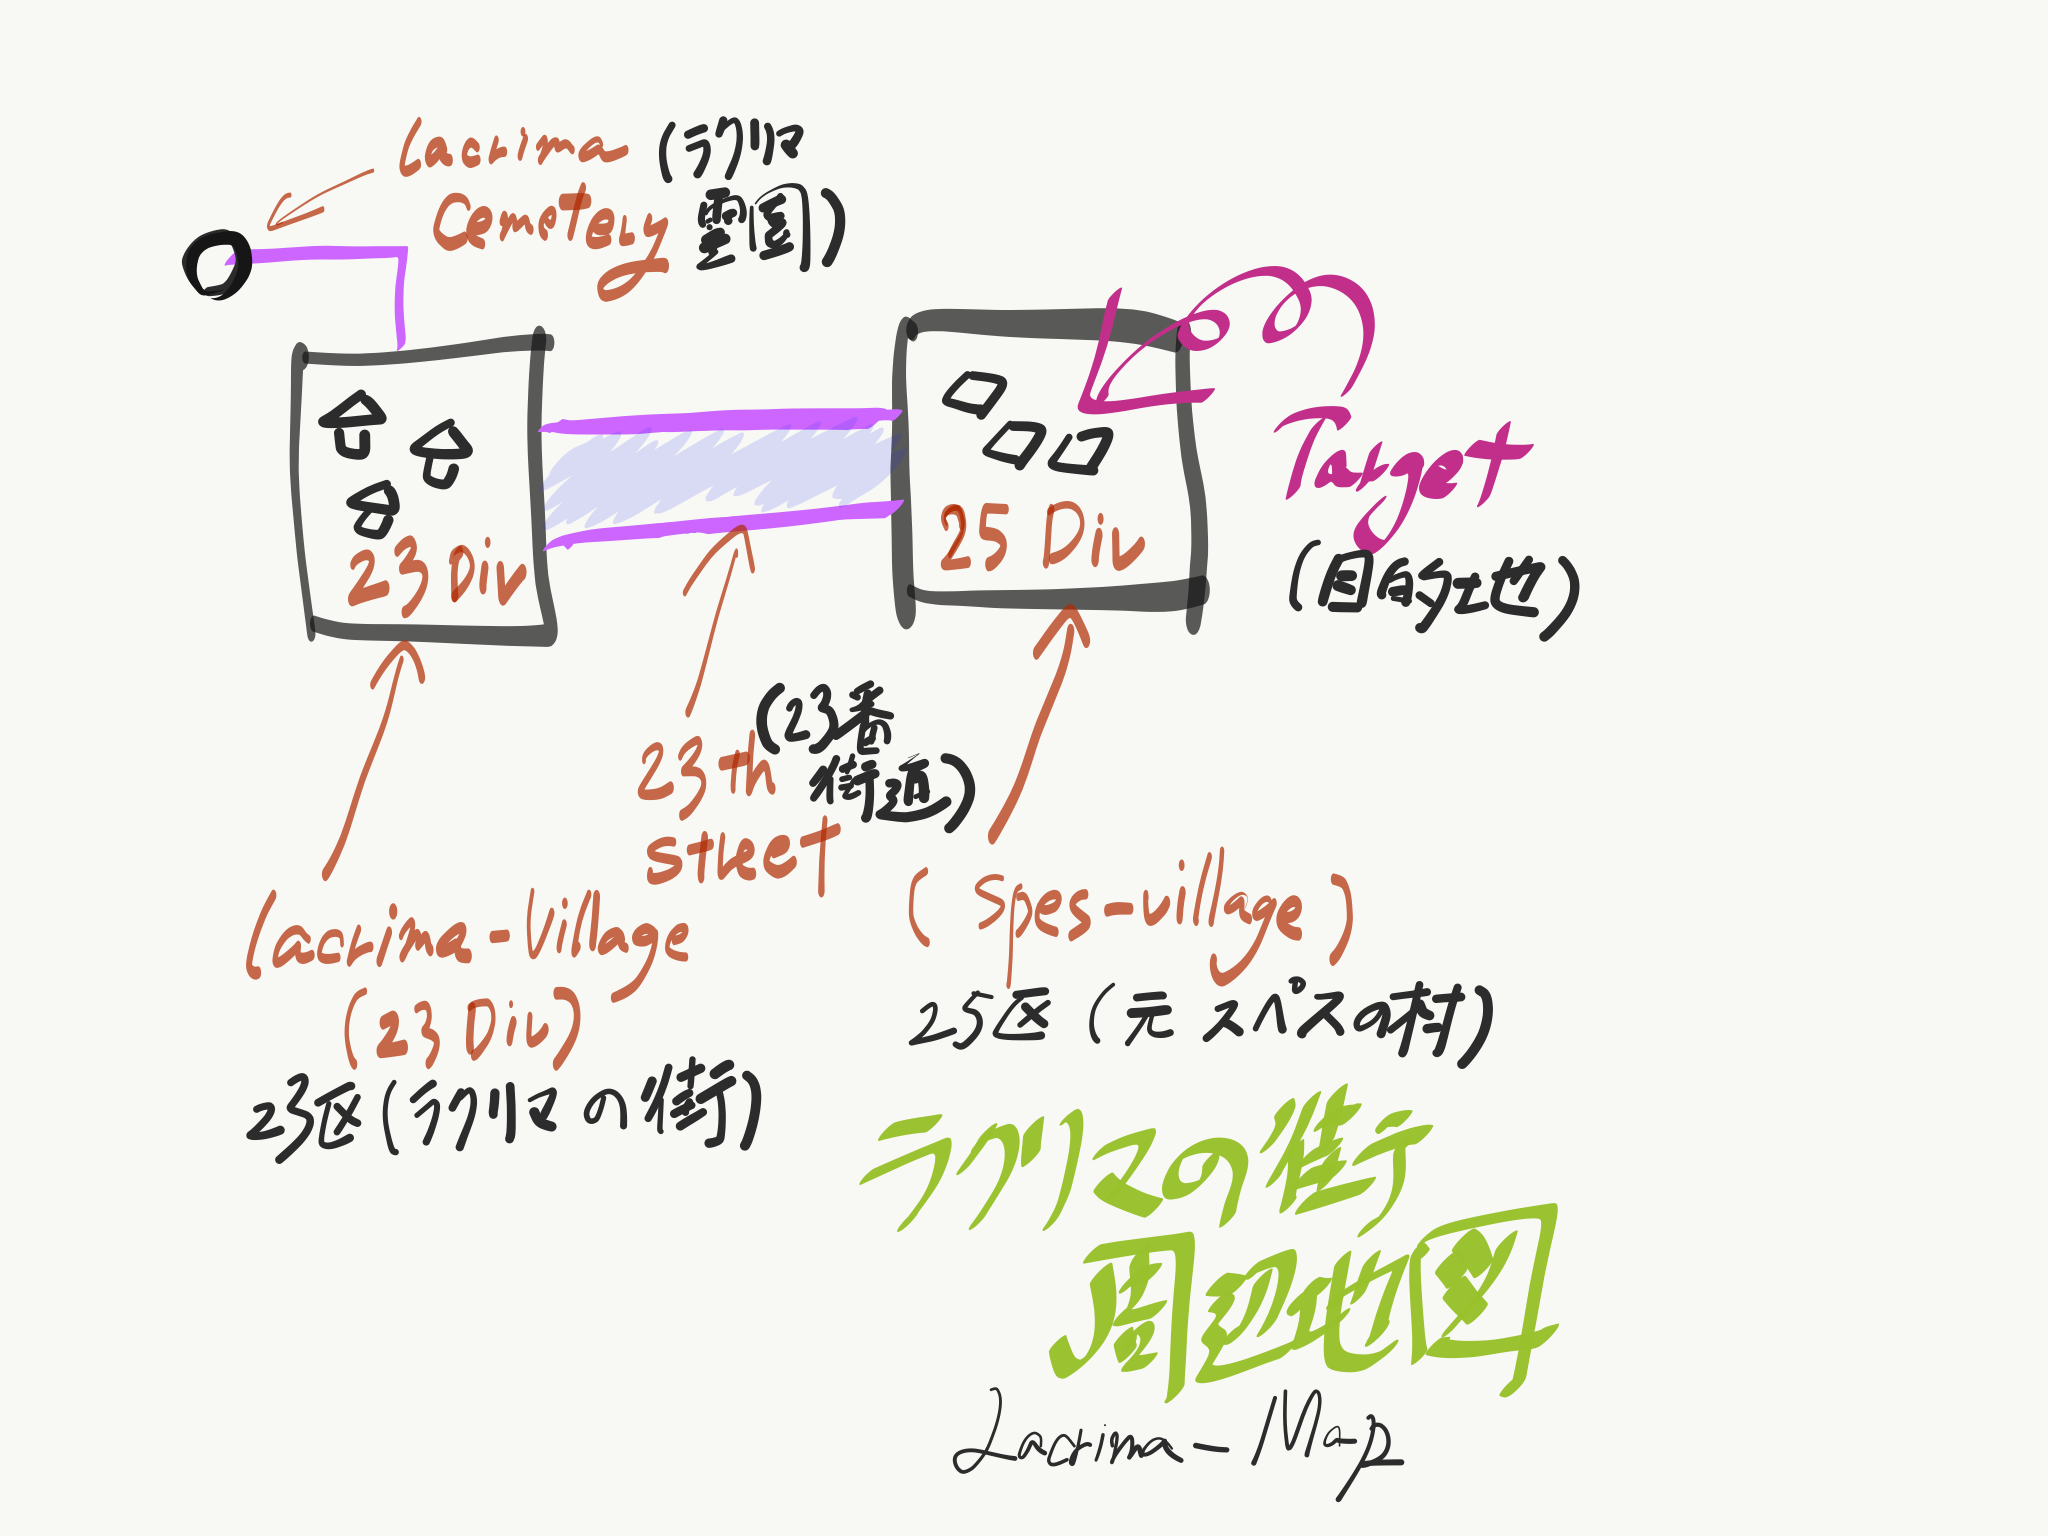 Lacrima (ラクリマ
Cemetery 霊園)
Target
(目的地)
23 Div
25 Div
(23番
街道)
23th
street
Lacrima-Village
(23 Div)
23区(ラクリマの街)
(Spes-village)
25区(元スペスの村)
ラクリマの街
周辺地図
Lacrima-Map